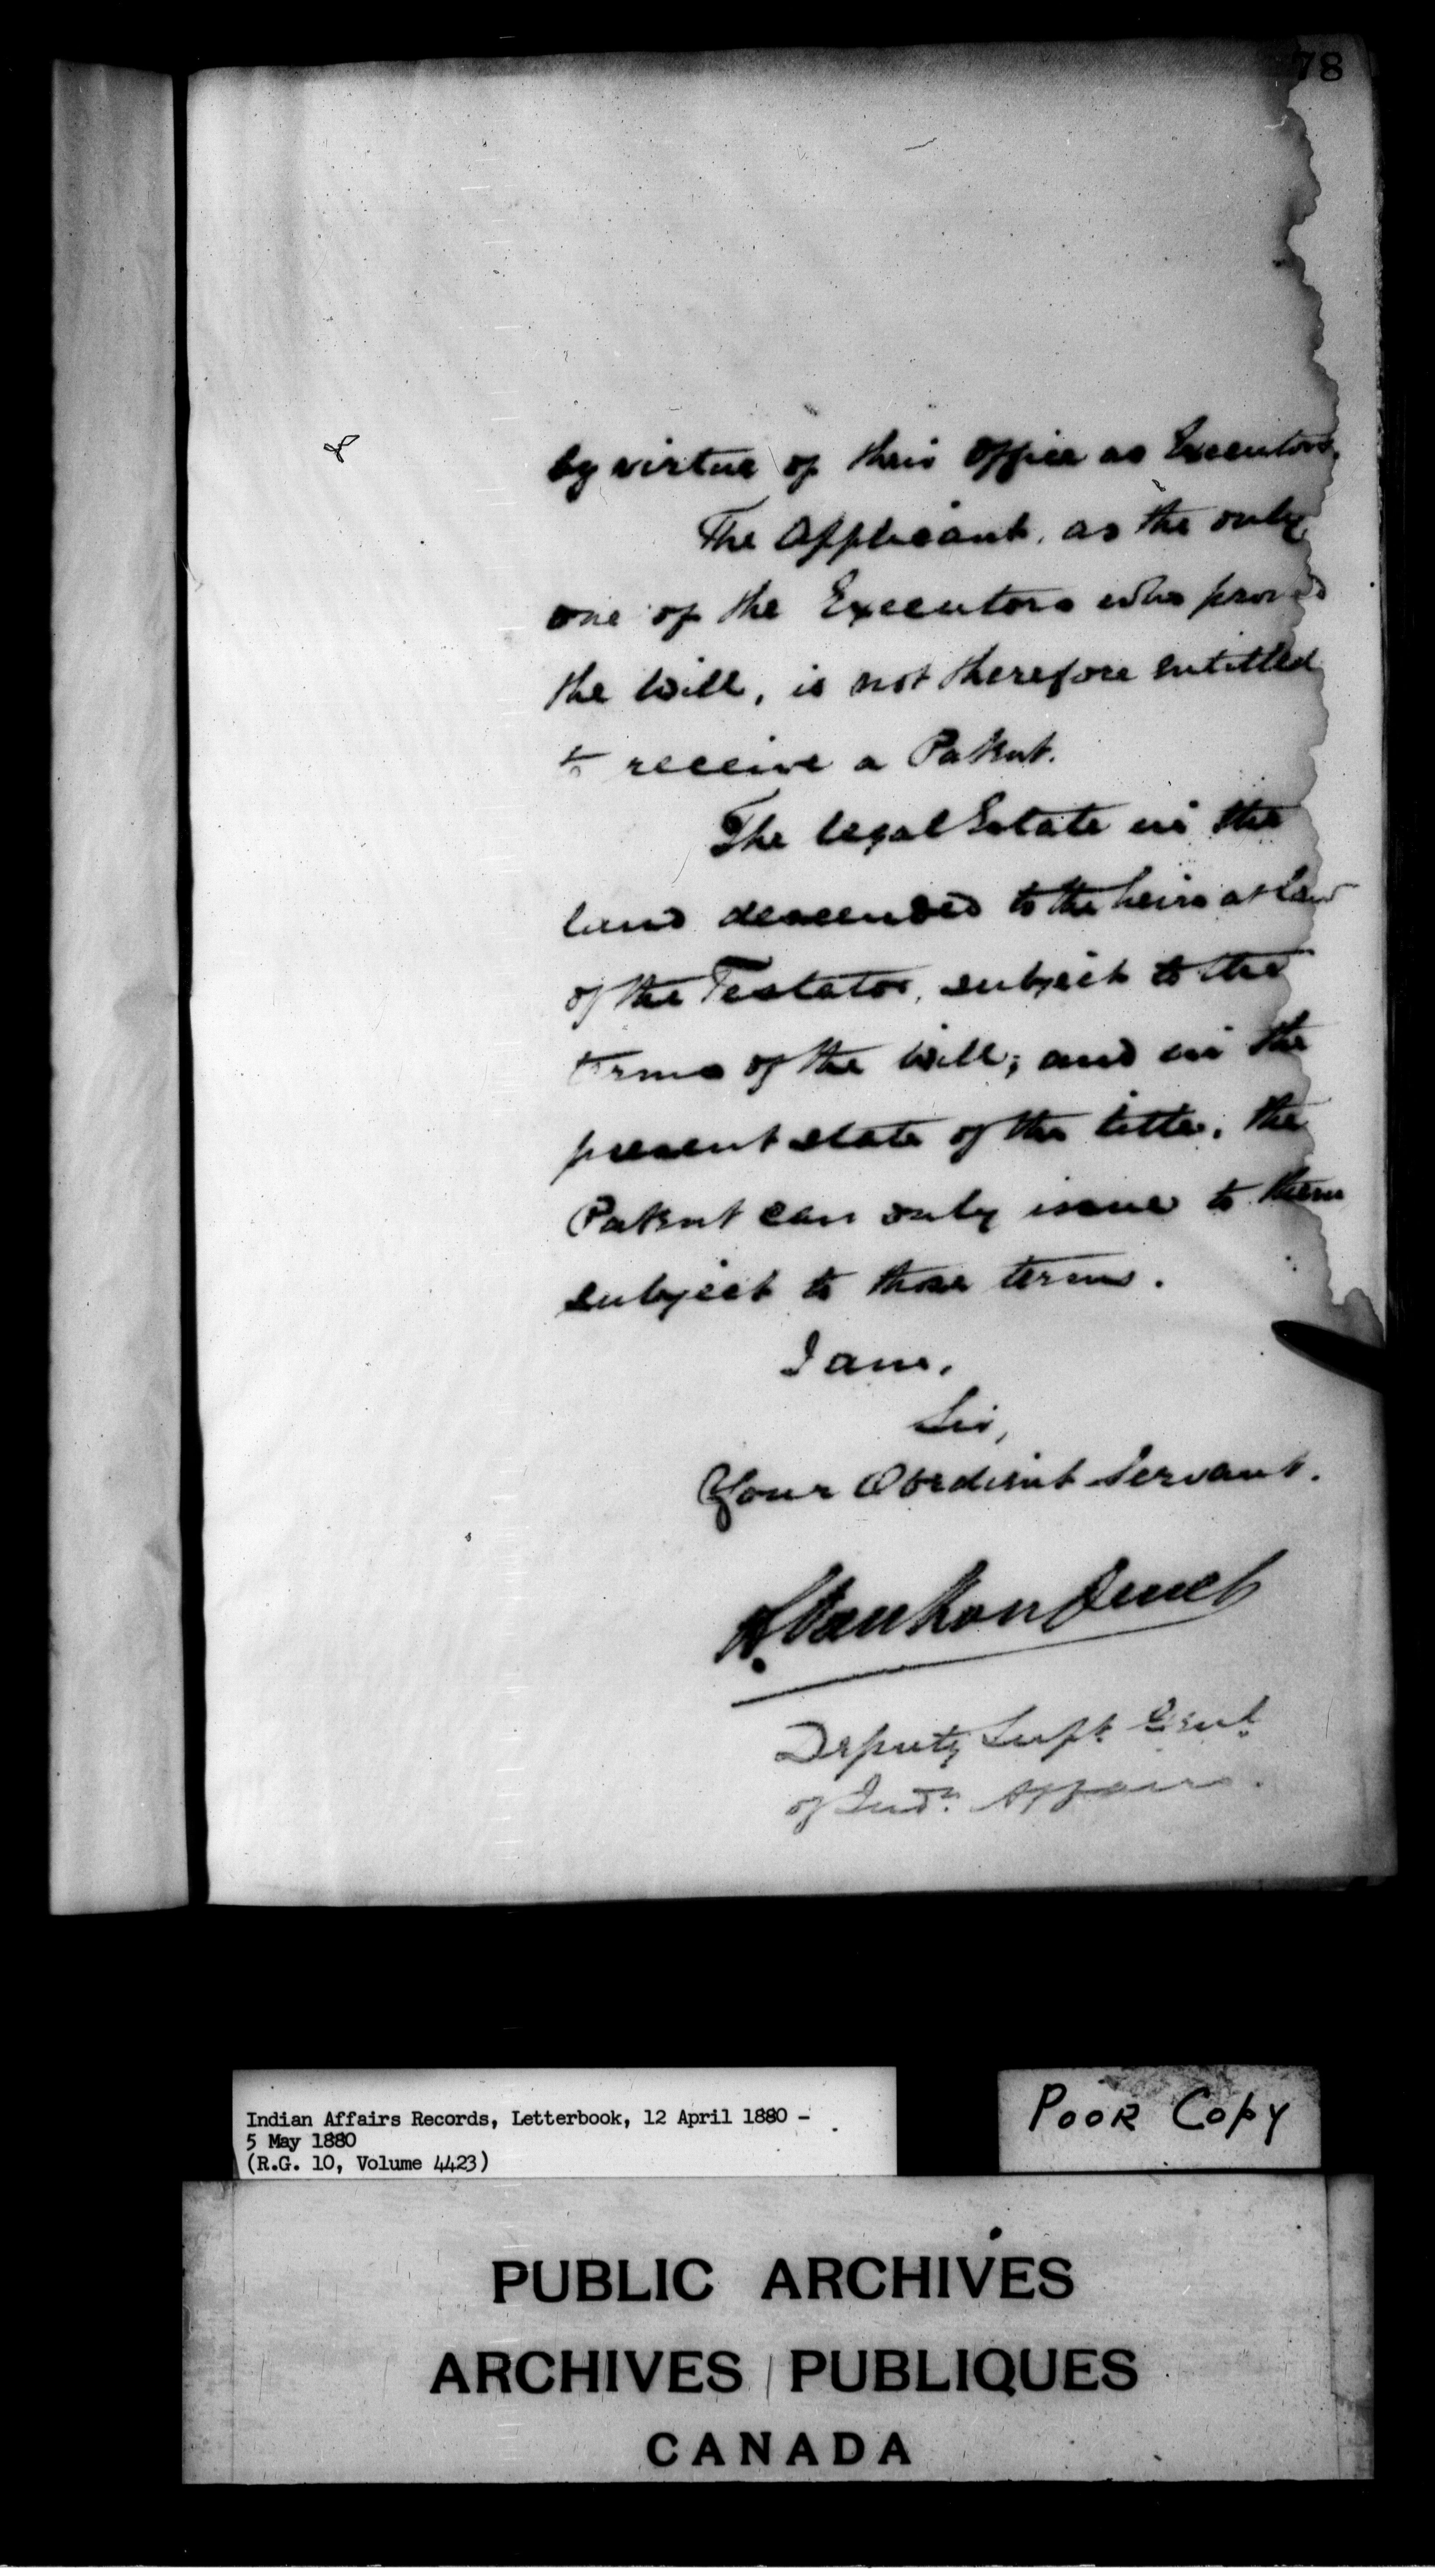 78
by virtue of their Office as Executors.
The Applicant, as the only
one of the Executors who proved
the Will, is not therefore entitled
to receive a Patent.
The legal Estate in the
land descended to the heirs at law
of the Testator, subject to the
terms of the Will; and in the
present state of the title, the
Patent can only issue to them
subject to those terms.
I am,
Sir,
Your Obedient Servant.
L. Vankoughnet
Deputy Supt. Genl.
of Indn. Affairs.
Indian Affairs Records, Letterbook, 12 April 1880 -
5 May 1880
(R.G. 10, Volume 4423)
POOR COPY
PUBLIC ARCHIVES
ARCHIVES PUBLIQUES
CANADA